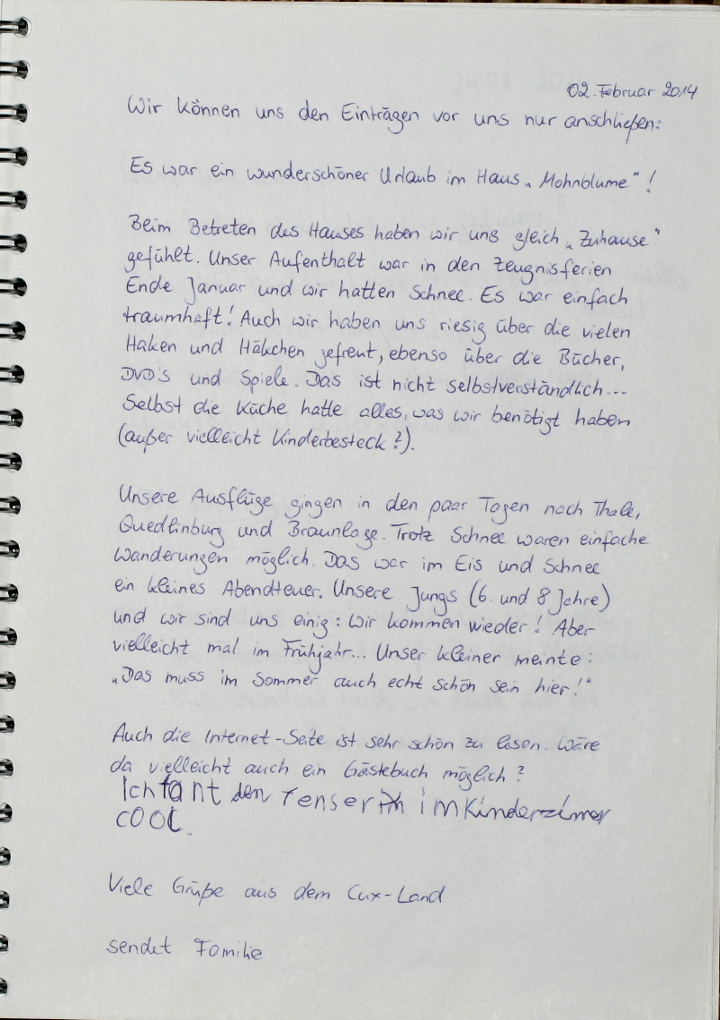 02. Februar 2014
Wir können uns den Einträgen vor uns nur anschließen:
Es war ein wunderschöner Urlaub im Haus „Mohnblume"!
Beim Betreten des Hauses haben wir uns gleich „Zuhause"
gefühlt. Unser Aufenthalt war in den Zeugnisferien
Ende Januar und wir hatten Schnee. Es war einfach
traumhaft! Auch wir haben uns riesig über die vielen
Haken und Häkchen gefreut, ebenso über die Bücher,
DVD'S und Spiele. Das ist nicht selbstverständlich...
Selbst die Küche hatte alles, was wir benötigt haben
(außer vielleicht Kinderbesteck?).
Unsere Ausflüge gingen in den paar Tagen nach Thale,
Quedlinburg und Braunlage. Trotz Schnee waren einfache
Wanderungen möglich. Das war im Eis und Schnee
ein kleines Abendteuer. Unsere Jungs (6. und 8 Jahre)
und wir sind uns einig: Wir kommen wieder! Aber
vielleicht mal im Frühjahr... Unser kleiner meinte:
„Das muss im Sommer auch echt schön sein hier!"
Auch die Internet-Seite ist sehr schön zu lesen. Wäre
da vielleicht auch ein Gästebuch möglich?
Ich fant den im Kinderzimer
cool.
Viele Grüße aus dem Cux-Land
sendet Familie